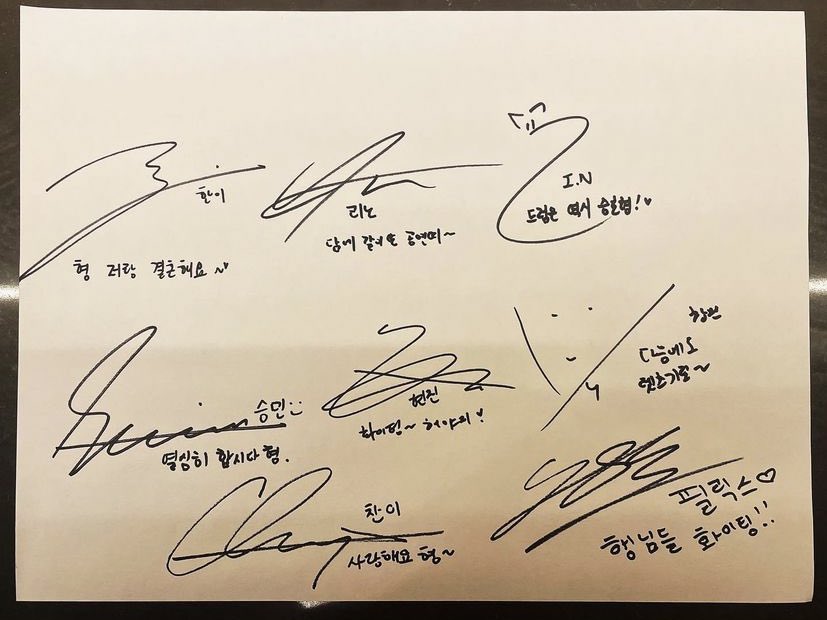 한이
형 저랑 결혼해요~♥
리노
담에 같이 또 공연때~
I.N
드럼은 역시 승호형!♥
승민
열심히 합시다 형.
현진
화이팅~
창빈
다음에도
렛츠기릿~
찬이
사랑해요 형~
필릭스♡
행님들 화이팅!!